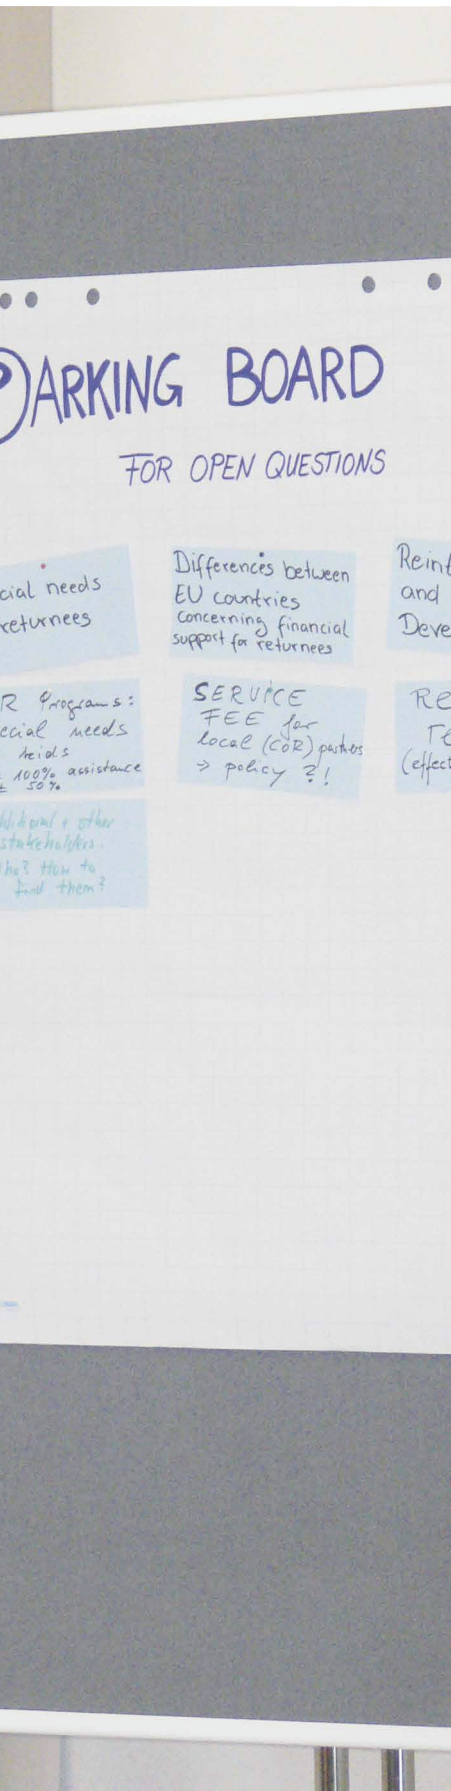 PARKING BOARD
FOR OPEN QUESTIONS
cial needs
returnees
Differences between
EU countries
concerning financial
support for returnees
Reint
and
Deve
R Programs:
ecial needs
100% assistance
50%
SERVICE
FEE for
local (COR) partners
→ policy ?!
Re
(effect
+ other
stakeholders.
ho? How to
find them?